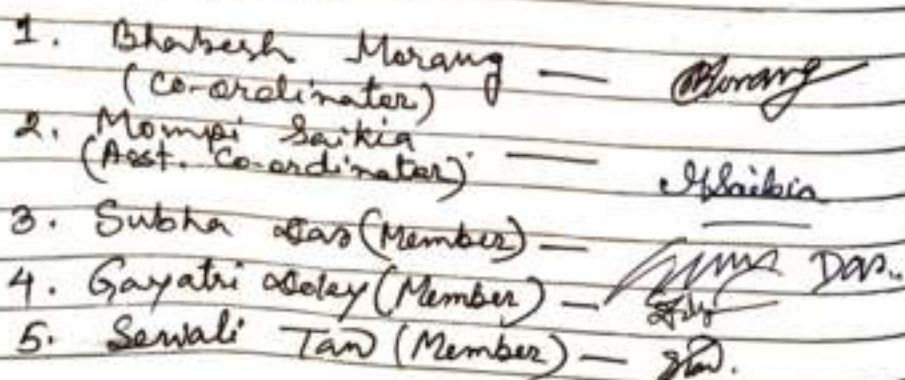 1. Bhabesh Morang — BMorang
(Co-ordinator)
2. Mompi Saikia
(Asst. Co-ordinator) — MSaikia
3. Subha Das (Member) — Das
4. Gayatri Doley (Member) —
5. Sewali Taw (Member) —